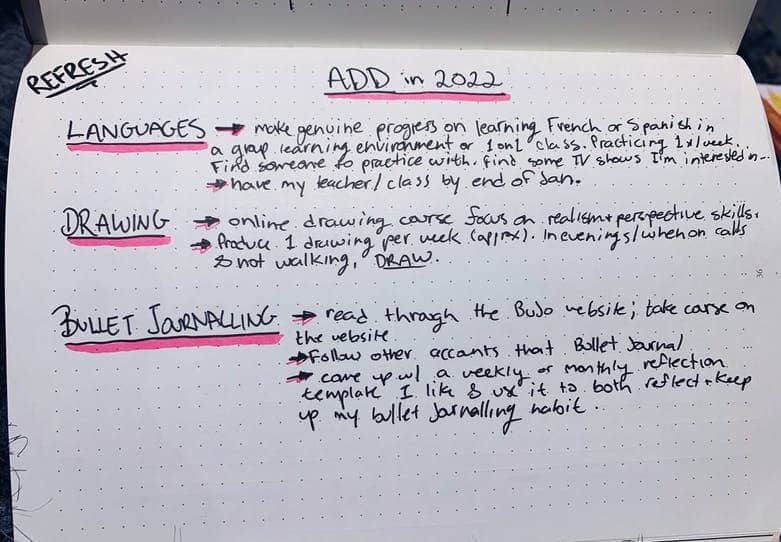 REFRESH
ADD in 2022
LANGUAGES → make genuine progress on learning French or Spanish in
a group learning environment or 1 on 1 class. Practicing 1x/week.
Find someone to practice with. find some TV shows I'm interested in...
→ have my teacher/class by end of Jan.
DRAWING → online drawing course focus on realism + perspective skills.
→ Produce 1 drawing per week (apprx). In evenings/when on calls
& not walking, DRAW.
BULLET JOURNALLING → read through the BuJo website; take course on
the website
→ Follow other accounts that Bullet Journal
→ come up w/ a weekly or monthly reflection
template I like & use it to both reflect + keep
up my bullet journalling habit.